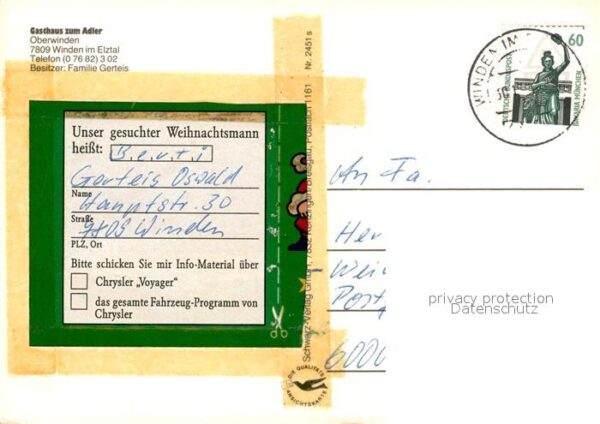 Gasthaus zum Adler
Oberwinden
7809 Winden im Elztal
Telefon (0 76 82) 3 02
Besitzer: Familie Gerteis
Unser gesuchter Weihnachtsmann
heißt: Berti
Gerteis Oswald
Name
Hauptstr. 30
Straße
7809 Winden
PLZ, Ort
Bitte schicken Sie mir Info-Material über
Chrysler „Voyager"
das gesamte Fahrzeug-Programm von
Chrysler
Schwarz-Verlag GmbH, 7832 Kenzingen/Breisgau, Postfach 1161 Nr. 2451 s
DIE QUALITÄTS
ANSICHTSKARTE
WINDEN IM
60
DEUTSCHE BUNDESPOST
BAVARIA MÜNCHEN
An Fa.
Her
Wei
Post
6000
privacy protection
Datenschutz